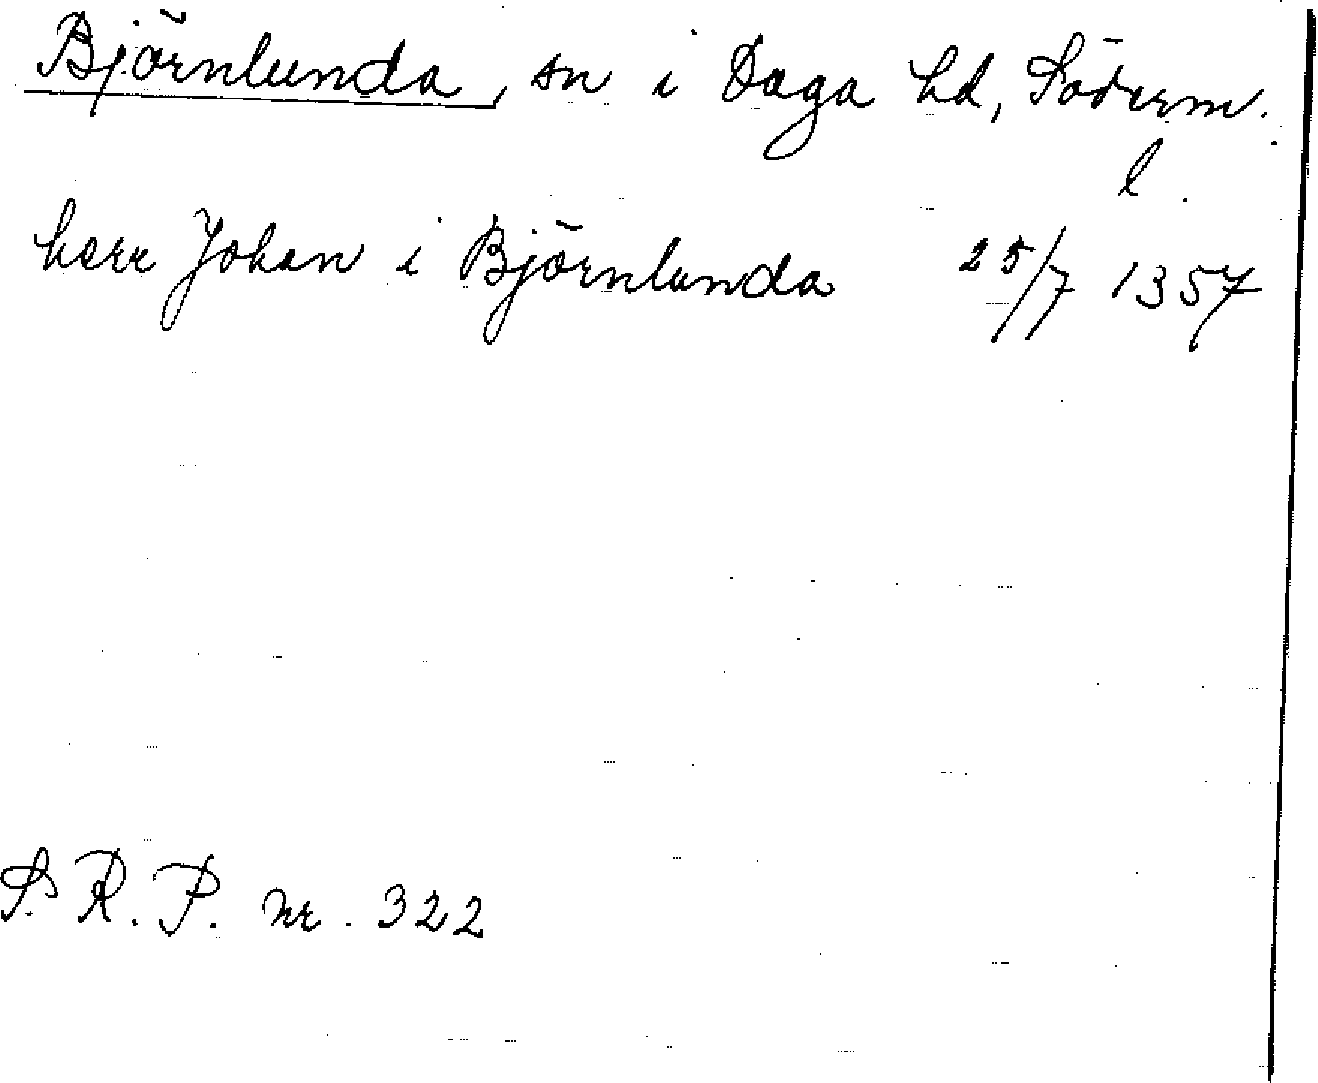 Björnlunda, sn i Daga hd, Söderm.
l.
herr Johan i Björnlunda 25/7 1357
S. R. P. nr. 322